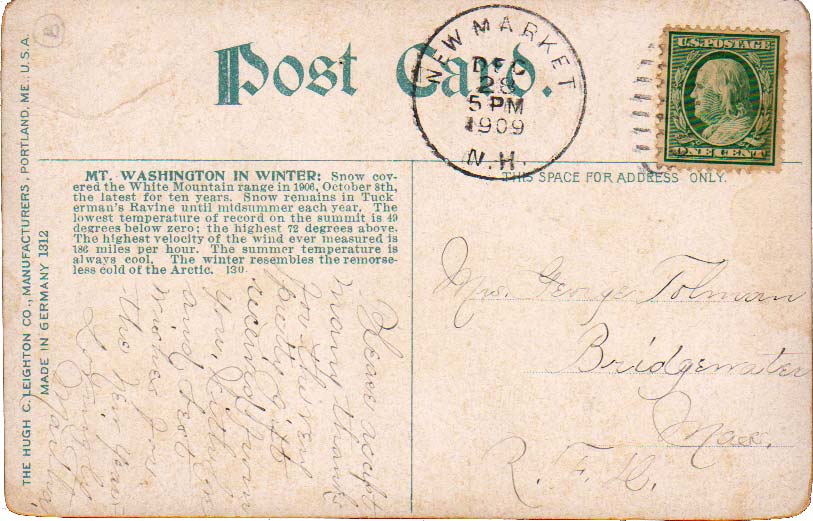 Post Card.
NEW MARKET
DEC
28
5 PM
1909
N.H.
U.S. POSTAGE
ONE CENT
MT. WASHINGTON IN WINTER: Snow cov-
ered the White Mountain range in 1906, October 8th,
the latest for ten years. Snow remains in Tuck
erman's Ravine until midsummer each year. The
lowest temperature of record on the summit is 49
degrees below zero; the highest 72 degrees above.
The highest velocity of the wind ever measured is
186 miles per hour. The summer temperature is
always cool. The winter resembles the remorse-
less cold of the Arctic. 130.
THIS SPACE FOR ADDRESS ONLY.
Mrs. George Tolman
Bridgewater
Mass.
R. F. D.
Please accept
many thanks
for the very
pretty gift
received from
you,
and best
wishes for
the New Year
Lovingly
THE HUGH C. LEIGHTON CO., MANUFACTURERS, PORTLAND, ME., U.S.A.
MADE IN GERMANY 1312